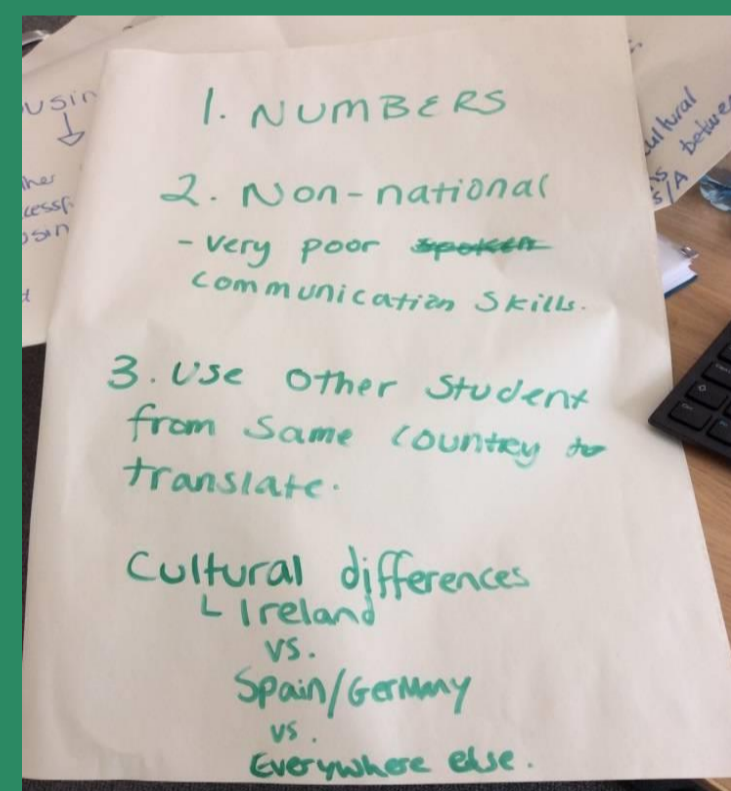 1. NUMBERS
2. Non-national
- very poor spoken
communication skills.
3. Use other Student
from Same country to
translate.
Cultural differences
Ireland
vs.
Spain/Germany
vs.
Everywhere else.
cultural
between
S/A